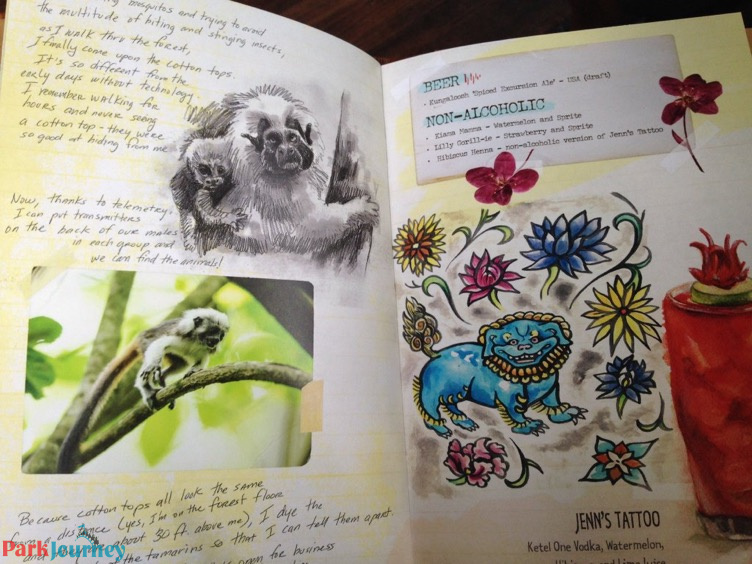 mosquitos and trying to avoid
the multitude of biting and stinging insects,
as I walk thru the forest,
I finally come upon the cotton tops.
It's so different from the
early days without technology
I remember walking for
hours and never seeing
a cotton top - they were
so good at hiding from me
Now, thanks to telemetry,
I can put transmitters
on the back of our males
in each group and
we can find the animals!
Because cotton tops all look the same
from a distance (yes, I'm on the forest floor
about 30 ft. above me), I dye the
of the tamarins so that I can tell them apart.
open for business
ParkJourney
BEER
• Kungaloosh 'Spiced Excursion Ale' - USA (draft)
NON-ALCOHOLIC
• Kiama Mamma - Watermelon and Sprite
• Lilly Gorill-ie - Strawberry and Sprite
• Hibiscus Henna - non-alcoholic version of Jenn's Tattoo
JENN'S TATTOO
Ketel One Vodka, Watermelon,
Hibiscus, and Lime Juice